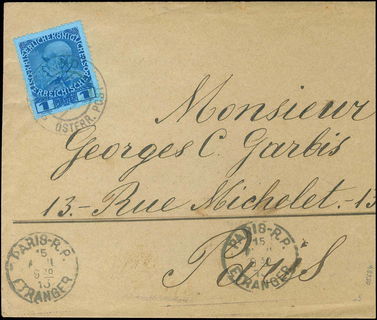 KAISERLICHEKÖNIGLICHE
ÖSTERREICHISCHE POST
1 1
ÖSTERR. POST
Monsieur
Georges C. Garbis
13.- Rue Michelet.-13
Paris
PARIS-R.P.
15
6 30
13
ETRANGER
PARIS-R.P.
15
6 30
13
ETRANGER